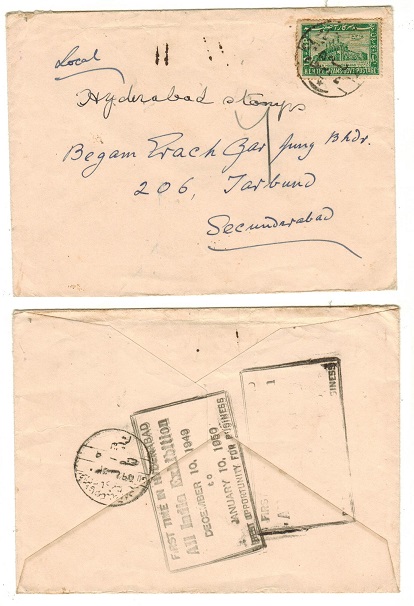 Local
Hyderabad stamps
Begam Erach Yar Jung Bhdr.
206, Tarbund
Secunderabad
H.E.H. THE NIZAMS GOVT POSTAGE
FIRST TIME IN HYDERABAD
All India Exhibition
DECEMBER 10, 1949
to
JANUARY 10, 1950
BEST OPPORTUNITY FOR BUSINESS